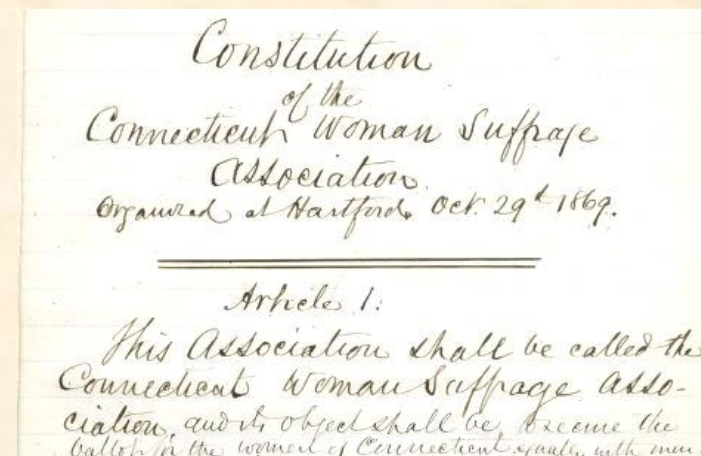 Constitution
of the
Connecticut Woman Suffrage
Association.
Organized at Hartford. Oct. 29th 1869.
Article 1:
This Association shall be called the
Connecticut Woman Suffrage Asso-
ciation, and its object shall be to secure the
ballot for the women of Connecticut equally with men.